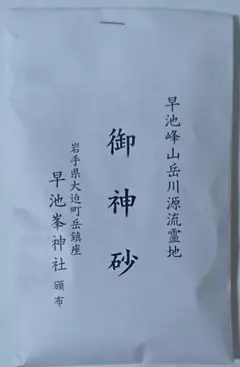 早池峰山岳川源流霊地
御神砂
岩手県大迫町岳鎮座
早池峯神社 頒布